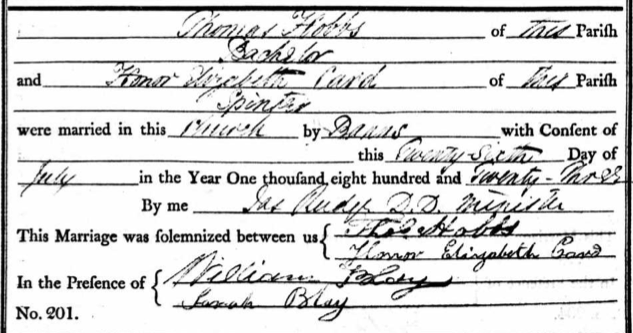 Thomas Hobbs of this Parish
Bachelor
and Honor Elizabeth Card of this Parish
Spinster
were married in this Church by Banns with Conſent of
this Twenty Sixth Day of
July in the Year One thouſand eight hundred and Twenty-Three
By me Jas Rudge D.D. Minister
This Marriage was ſolemnized between us { Thos Hobbs
Honor Elizabeth Card
In the Preſence of { William Blay
Sarah Blay
No. 201.